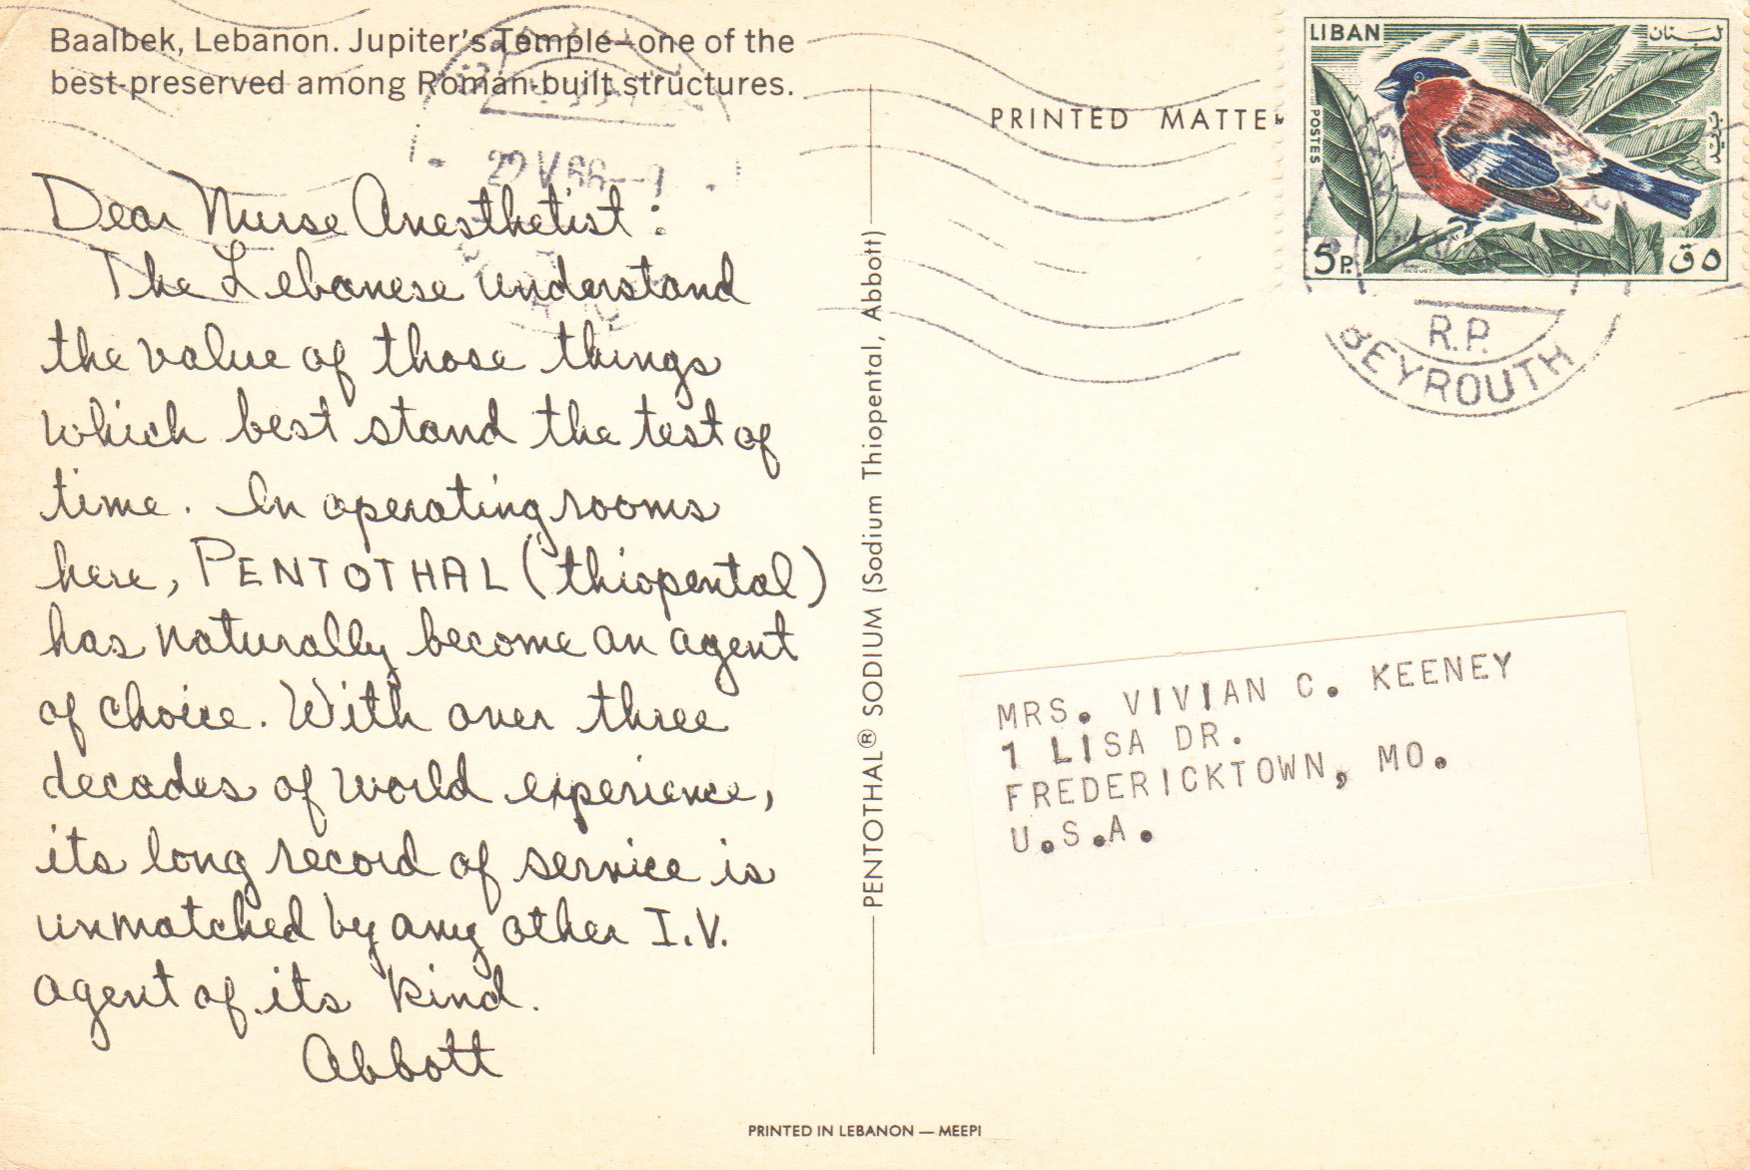 Baalbek, Lebanon. Jupiter's Temple—one of the
best-preserved among Roman-built structures.
22 V 66
Dear Nurse Anesthetist:
The Lebanese understand
the value of those things
which best stand the test of
time. In operating rooms
here, PENTOTHAL (thiopental)
has naturally become an agent
of choice. With over three
decades of world experience,
its long record of service is
unmatched by any other I.V.
agent of its kind.
Abbott
PENTOTHAL® SODIUM (Sodium Thiopental, Abbott)
PRINTED MATTE
LIBAN
لبنان
POSTES
بريد
5 P.
٥ ق
R.P.
BEYROUTH
MRS. VIVIAN C. KEENEY
1 LISA DR.
FREDERICKTOWN, MO.
U.S.A.
PRINTED IN LEBANON — MEEPI